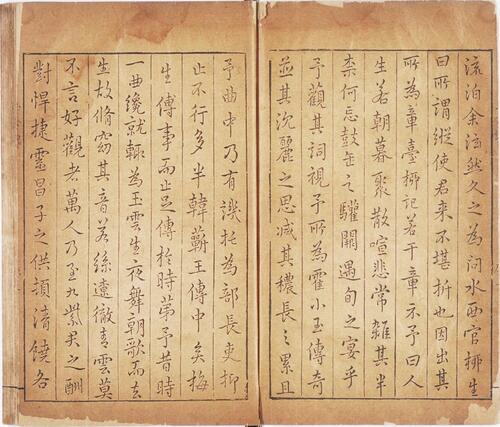 流泊余泫然久之為問水西官栁生
曰所謂縱使君来不堪折也因出其
所為章臺栁記若干章示予曰人
生若朝暮聚散喧悲常雜其半
柰何忘鼓缶之驩闕遇旬之宴乎
予觀其詞視予所為霍小玉傳奇
並其沉麗之思减其穠長之累且
予曲中乃有譏托為部長吏抑
止不行多半韓蘄王傳中矣梅
生傳事而止足傳於時第予昔時
一曲纔就輒為玉雲生夜舞朝歌而去
生故脩窈其音若絲遼徹青雲莫
不言好觀者萬人乃至九紫君之酬
對悍捷靈昌子之供頓清饒各